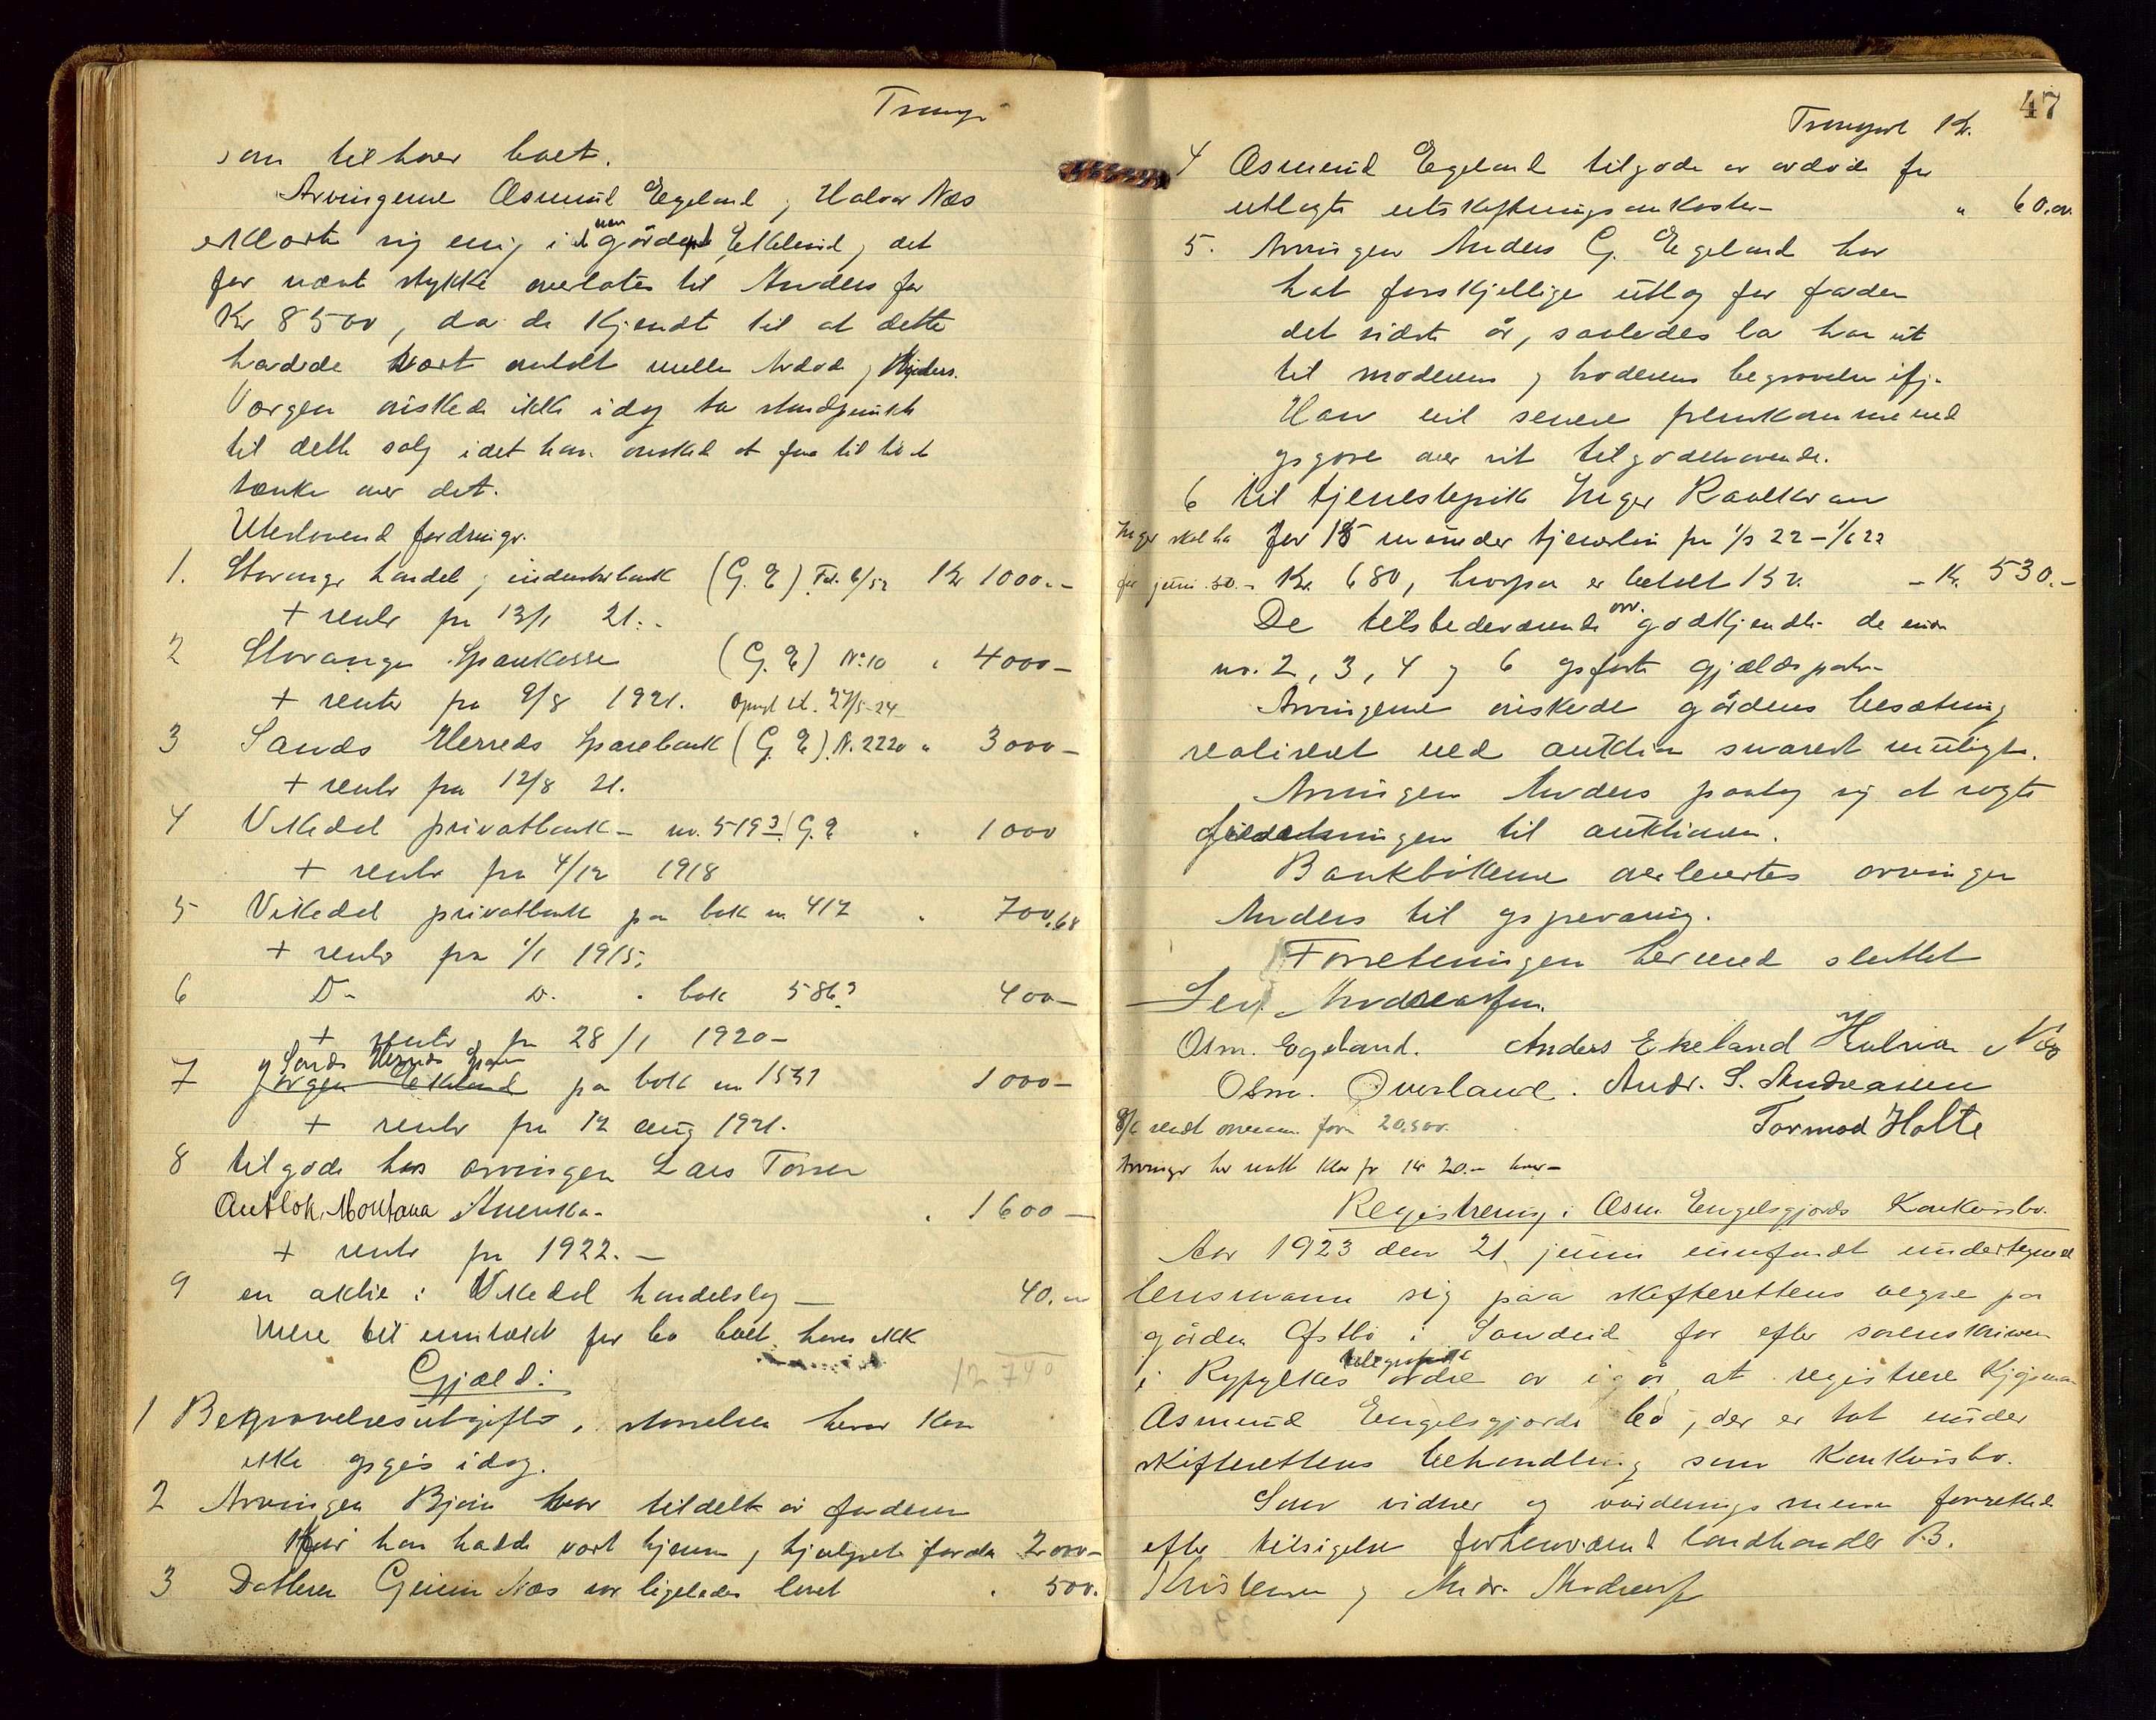 som tilhører boet.
Arvingerne Asmund Egeland, Halvor Næs
erklærte sig enig i at gården Ekeland, det
før nævnte stykke overlates til Anders for
Kr 8500, da de kjendte til at dette
hadde vært avtalt mellem Avdøde og Anders.
Værgen ønskede ikke idag ta standpunkt
til dette salg idet han ønsket at faa tid til at
tænke over det.
Utestaaend fordringer.
1. Stavanger handel og industribank (G. E) Fol. 6/52 Kr 1000.-
+ renter fra 13/1 21.-
2 Stavanger Sparekasse (G. E) No 10 " 4000-
+ renter fra 9/8 1921.
3 Sands Herreds Sparebank (G. E) N. 2220 " 3000-
+ renter fra 12/8 21.
4 Vikedal privatbank - no. 5193 G. E " 1000
+ renter fra 4/12 1918
5 Vikedal privatbank paa bok no 417 " 700,68
+ renter fra 1/1 1915.
6 Do Do " bok 5863 400-
+ renter fra 28/1 1920-
og Sands Herreds Spare
7 Jørgen Ekeland paa bok no 1531 1000-
+ renter fra 12 aug 1921.
8 tilgode hos arvingen Lars Torsen
Montana Amerika. " 1600-
+ renter fra 1922.-
9 en aktie i Vikedal handelslag - 40.00
Mere til inntækt for bo boet haves ikke
12 740
Gjæld:
1 Begravelsesutgifter, størrelsen herav kan
ikke opgis idag.
2 Arvingen Bjørn har tildelt av faderen
for han hadde vært hjemme og hjulpet faren 2000-
3 Datteren Næs var ligeledes lovet " 500.
47
Transport Kr.
4 Asmund Egeland tilgode av avdøde for
utlagte utskiftningsomkostn- " 60.00
5. Arvingen Anders G. Egeland har
hat forskjellige utlæg for faderen
det sidste år, saaledes la han ut
til moderens og broderens begravelse ifj.
Han vil senere fremkomme med
opgave over sit tilgodehavende.
6 til tjenestepike Inger
Inger skal ha for 15 maaneder tjeneste fra 1/3 22 - 1/6 22
for juni 50.- Kr. 680, hvorpaa er betalt 150. - Kr. 530.-
De tilstedeværende arv. godkjendte de under
no. 2, 3, 4 og 6 opførte gjældsposter
Arvingerne ønskede gårdens besætning
realiseret ved auktion snarest muligt.
Arvingen Anders paatog sig at søgte
til auktionen.
Bankbøkerne overlevertes arvingen
Anders til opbevaring.
Forretningen hermed sluttet
Sev. Andreassen.
Osm. Egeland. Anders Ekeland Halvor Næs
Osm. Overland. Andr. S. Andreassen
Tormod Holte
Registrering i Asm Engelsgjerds Konkursbo.
Aar 1923 den 21 juni innfandt undertegned
lensmann sig paa skifterettens vegne paa
gården Østbø i Sandeid for efter sorenskriveren
i Ryfylkes telegrafisk ordre av igår at registrere Kjøpmann
Asmund Engelsgjerds bo, der er tat under
skifterettens behandling som Konkursbo.
Som vidner og vurderingsmenn forrettet
efter tilsigelse forhenværend landhandler B.
Kristensen og Andr. Andreassen